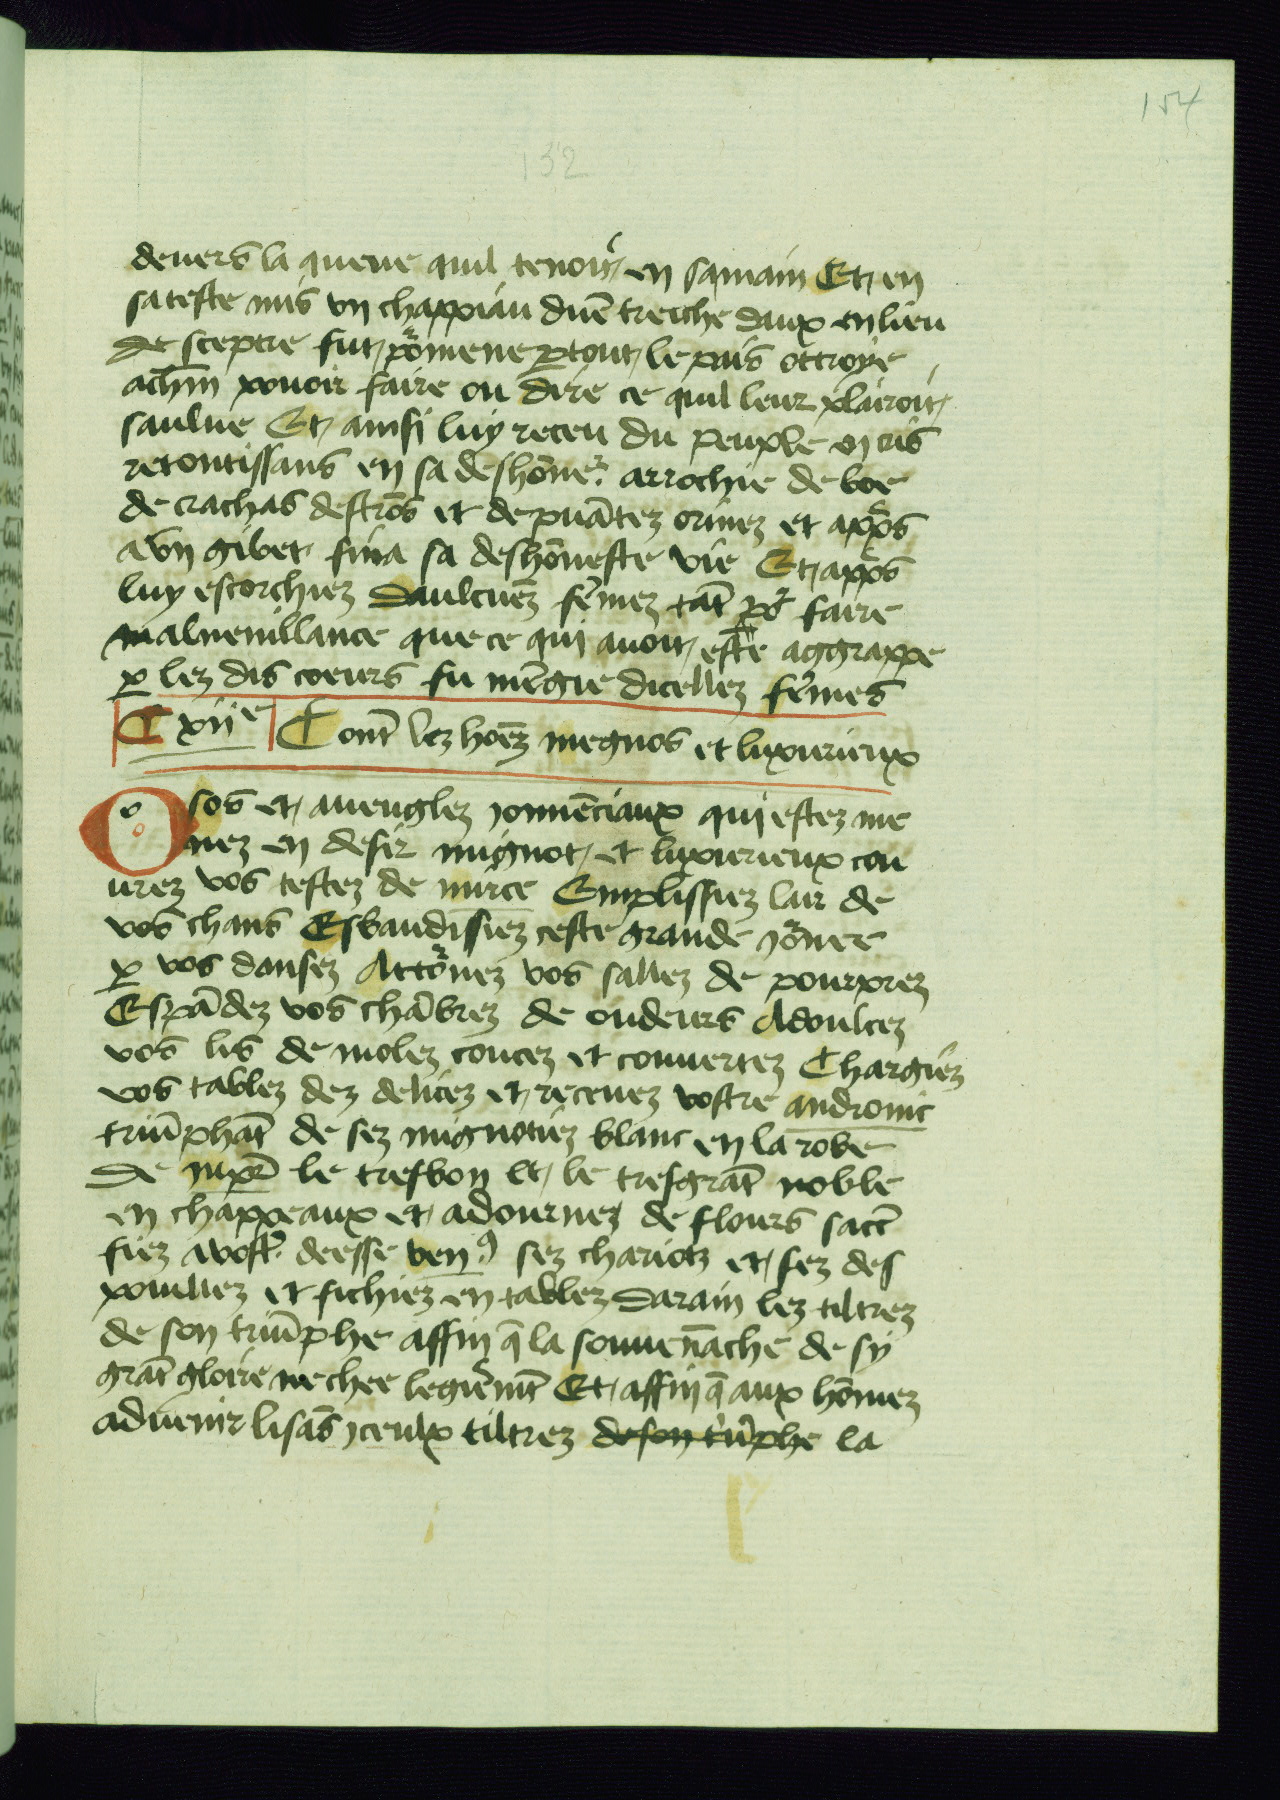 154
132
deuers la queue quil tenoit en sa main Et en
sa teste mis vn chappiau dune̅ treiche daux en lieu
de sceptre fut po̅mene ꝑtout le pais ottroye
achm̅ pouoir faire ou dire ce quil leur plairoit
saulue Et ainsi luy receu du peuple en cris
retontissans en sa desho̅ner̃ arrochie de boe
de crachas destro̅s et de pua̅tez orinez et app̃s
a vn gibet fina sa desho̅neste vie Et app̃s
luy escorchiez daulcue̅z fe̅mez ta̅t po᷑ faire
malueuillance que ce qui auoit este aggrappe
ꝑ lez dis coeurs fu me̅gie dicellez fe̅mes
C xiie Cont̃ lez hoe̅z megnos et luxurieux
O sos et aueuglez jouue̅ciaux qui estez me
nez en desir mignot et luxurieux cou
urez vos testez de mirce Emplissiez lair de
vos chans Esbaudissiez ceste grande jo̅nee
ꝑ vos dansez Atto̅nez vos sallez de pourprez
Espa̅dez vos cha̅brez de oudeurs Adoulcez
vos lis de molez coucez et couuertez Chargiez
vos tablez dez delicez et receuez vostre andronic
triu̅pha̅t de sez mignotiez blanc en la robe
de jup̅r le tresbon et le tresgra̅t noble
en chappeaux et adournez de flours sacr̃
fiez a vostr̃ deesse venꝰ sez chariotz et sez des
pouillez et fichiez en tablez darain lez tiltrez
de son triu̅phe affin q̅ la souuena̅che de sy
gra̅t gloire ne chee legier̃mt̅ Et affin q̅ aux ho̅mez
aduenir lisa̅s jceulx tiltrez de son triu̅phe la